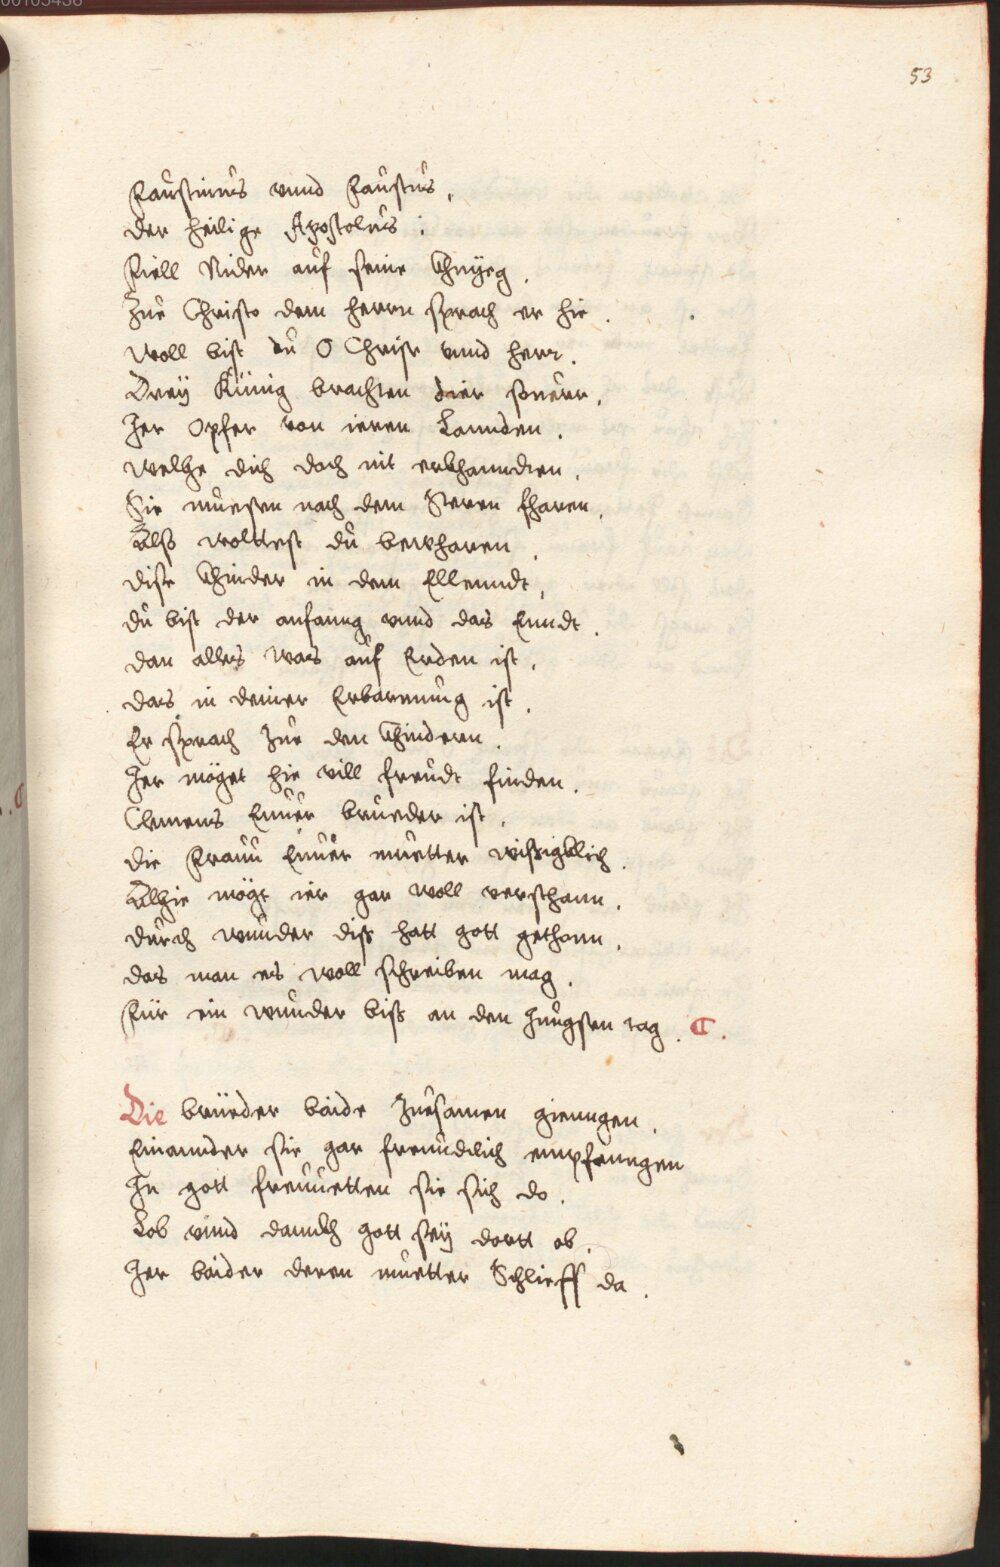 53
Faustinus vnnd Faustus,
der heilige Apostolus :
Fiell Nider auf seine Khnyeg.
Zue Christo dem herrn sprach er hie.
Woll bist du O Christ vnnd herr.
Drey Künig brachten dier
Jer Opfer von ieren Lannden.
Welche dich doch nit erkhanndten.
Sie muesten nach dem Steren fharen,
Alss wolttest du bewharen.
dise Khinder in dem Ellenndt,
du bist der anfanng vnnd das Ennde.
dan alles was auf Erden ist,
das in deiner Erbarmung ist.
Er sprach Zue den Khindern.
Jer möget hie vill freudt finden.
Clemens Euuer brueder ist.
die Frauu Euuer muetter
Alhie mögt ier gar woll versthann.
durch wunder diss hatt gott gethonn.
das man es woll schreiben mag.
Für ein wunder biss an den Jungsten tag. C.
Die brüeder baide Zuesamen gienngen.
Einannder sie gar freundtlich empfanngen
In gott freuuetten sie sich do.
Lob vnnd dannckh gott sey dortt ob.
Jer baider deren muetter Schlieff da.